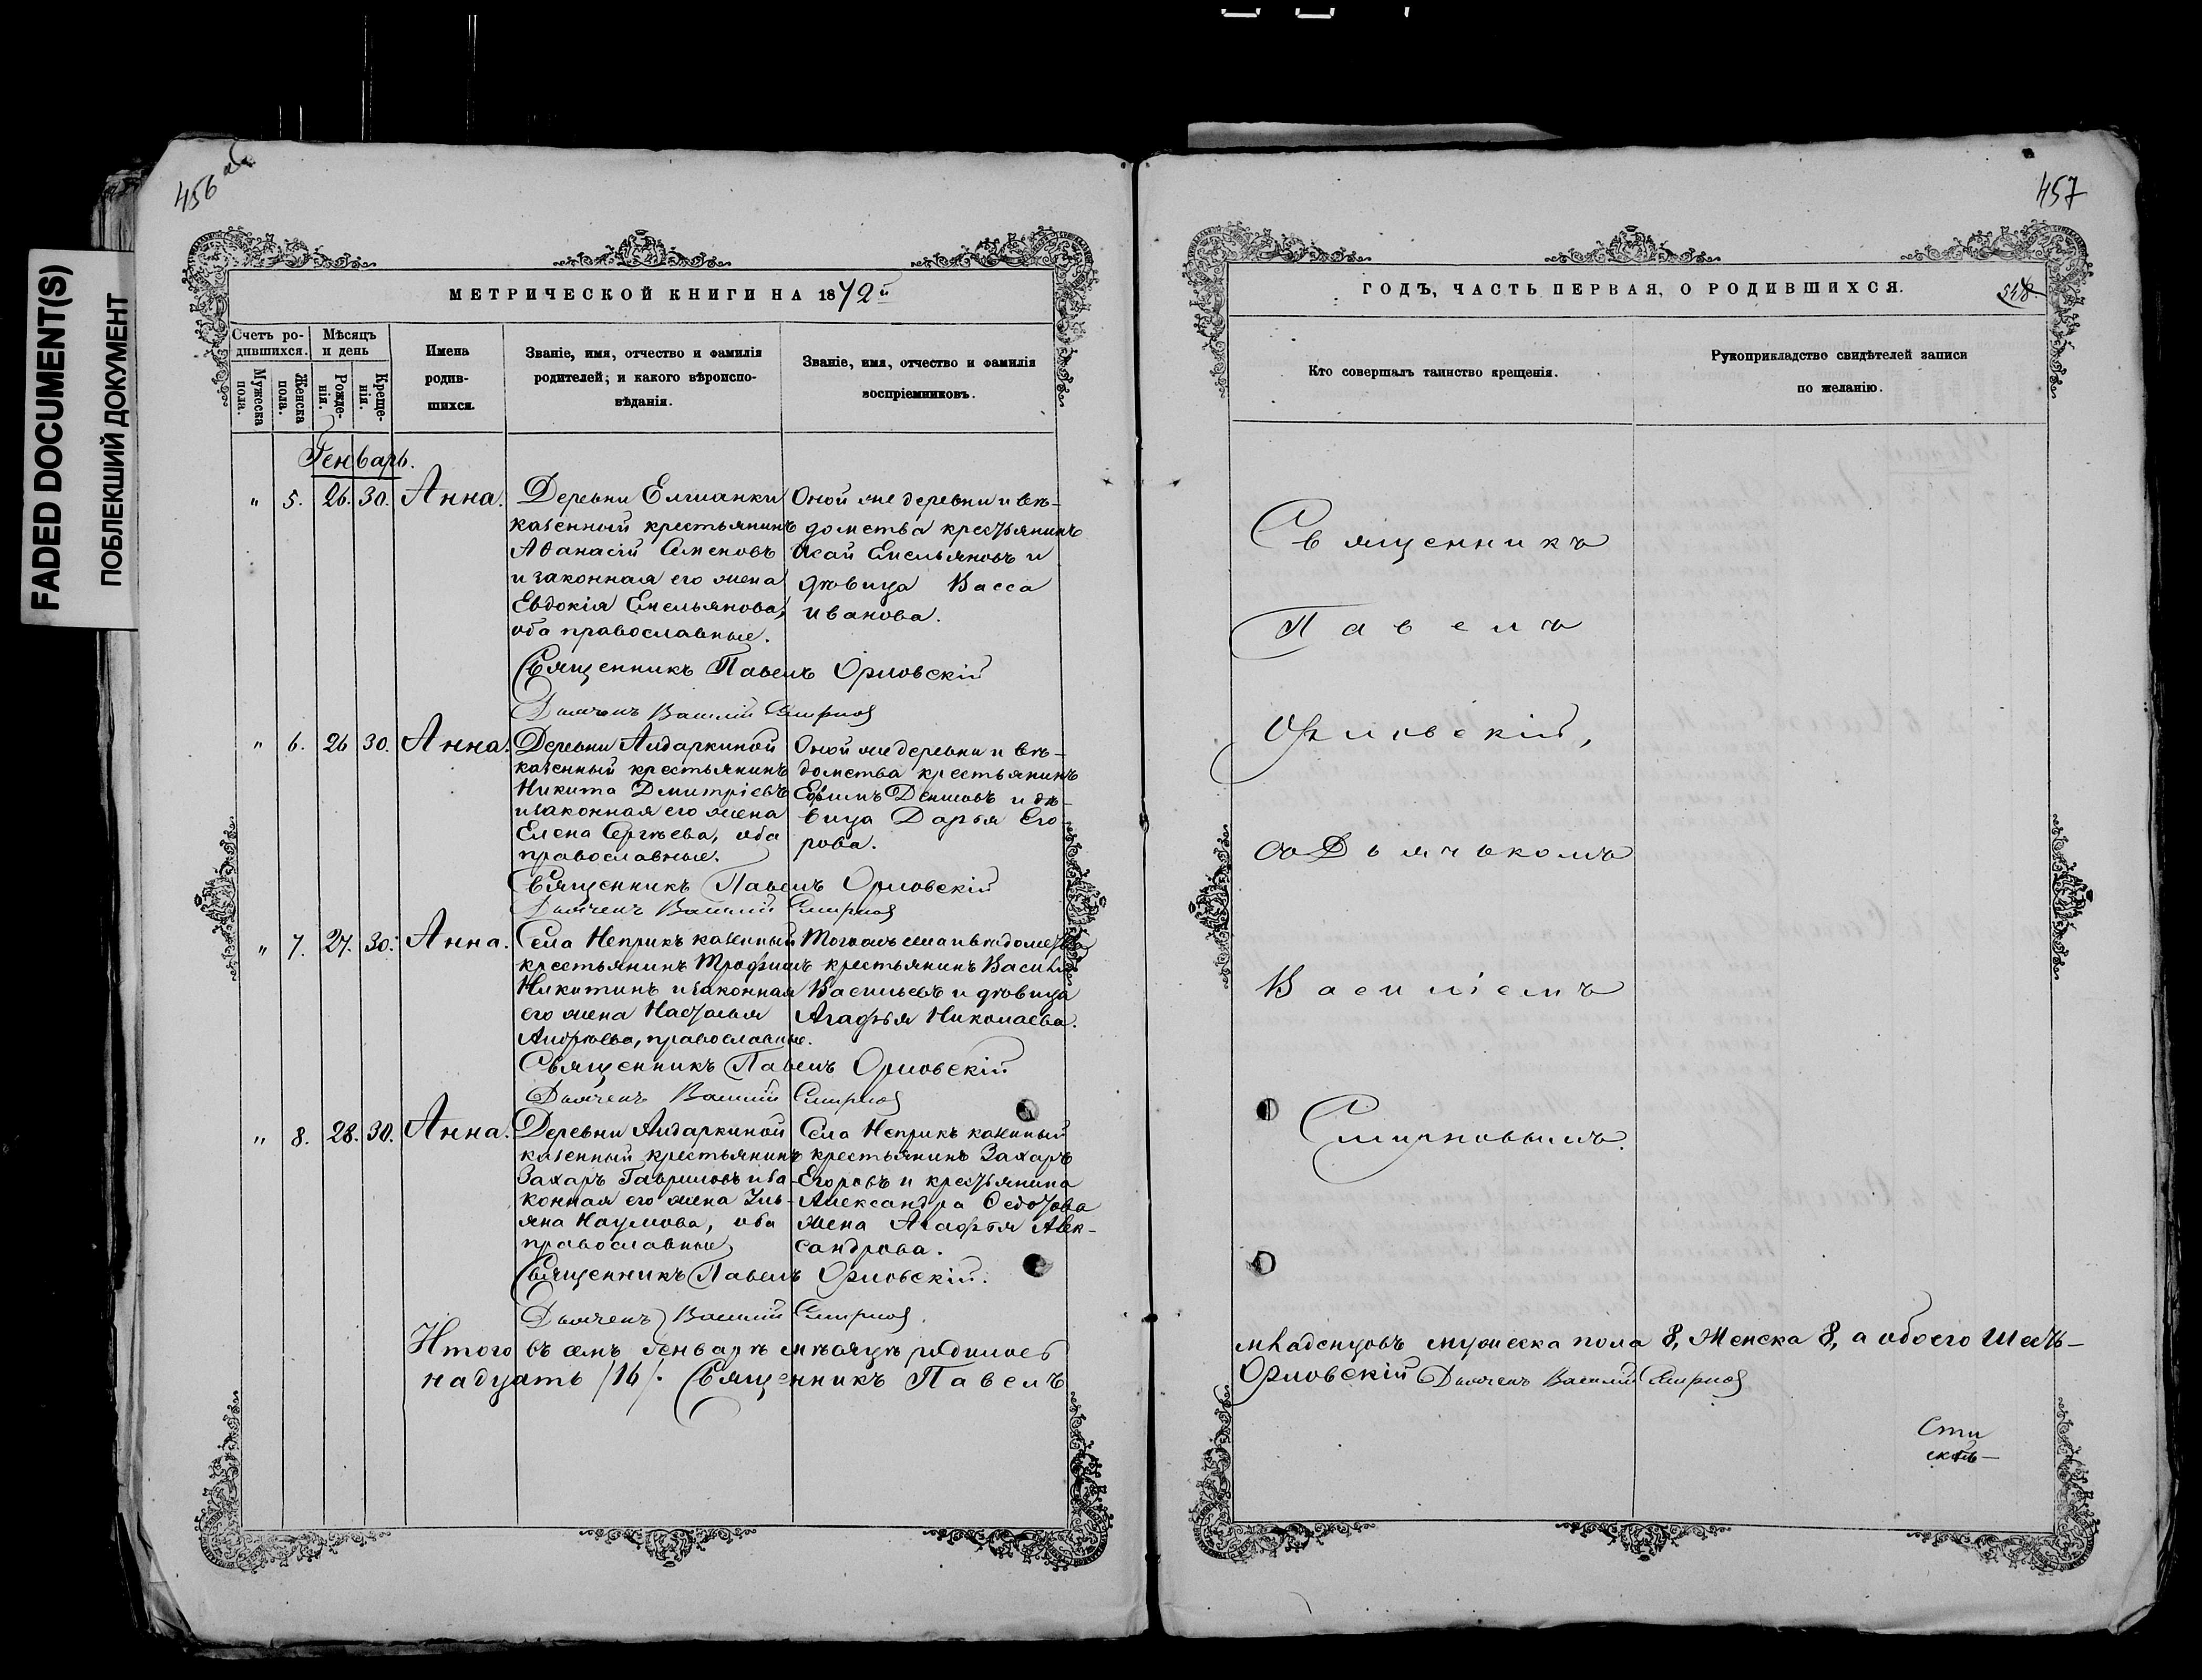 FADED DOCUMENT(S)
ПОБЛЕКШИЙ ДОКУМЕНТ
456 об
МЕТРИЧЕСКОЙ КНИГИ НА 1872й
Счетъ ро-
дившихся.
Мужеска
пола.
Женска
пола.
Мѣсяцъ
и день
Рожде-
нія.
Креще-
нія.
Имена
родив-
шихся.
Званіе, имя, отчество и фамилія
родителей; и какого вѣроиспо-
вѣданія.
Званіе, имя, отчество и фамилія
воспріемниковъ.
Генварь.
" 5. 26. 30. Анна.
Деревни Елшанки
казенный крестьянинъ
Аѳанасій Семеновъ
и законная его жена
Евдокія Емельянова,
оба православные.
Оной же деревни и вѣ-
домства крестьянинъ
Исай Емельяновъ и
дѣвица Васса
Иванова.
Священникъ Павелъ Орловскій
Дьячекъ Василій Смирнов
" 6. 26 30. Анна.
Деревни Аидаркиной
казенный крестьянинъ
Никита Дмитріевъ
и законная его жена
Елена Сергѣева, оба
православные.
Оной же деревни и вѣ-
домства крестьянинъ
Ефимъ Денисовъ и дѣ-
вица Дарья Его
рова.
Священникъ Павелъ Орловскій
Дьячекъ Василій Смирнов
" 7. 27. 30. Анна.
Села Неприкъ казенный
крестьянинъ Трофимъ
Никитинъ и законная
его жена Наталья
Андреева, православные.
Того же села и вѣдомства
крестьянинъ Василій
Васильевъ и дѣвица
Агафья Николаева.
Священникъ Павелъ Орловскій
Дьячекъ Василій Смирнов
" 8. 28. 30. Анна.
Деревни Аидаркиной
казенный крестьянинъ
Захаръ Гавриловъ и за-
конная его жена Улья-
на Наумова, оба
православные
Села Неприкъ казенный
крестьянинъ Захаръ
Егоровъ и крестьянина
Александра Ѳедотова
жена Агафья Алек-
сандрова.
Священникъ Павелъ Орловскій.
Дьячекъ Василій Смирнов
Итого въ семъ Генварѣ мѣсяцѣ родилось
надцать /16/. Священникъ Павелъ
457
ГОДЪ, ЧАСТЬ ПЕРВАЯ, О РОДИВШИХСЯ.
Кто совершалъ таинство крещенія.
Рукоприкладство свидѣтелей записи
по желанію.
Священникъ
Павелъ
Орловскій,
со Дьячькомъ
Василіемъ
Смирновымъ.
младенцовъ мужеска пола 8, Женска 8, а обоего Шест-
Орловскій Дьячекъ Василій Смирнов